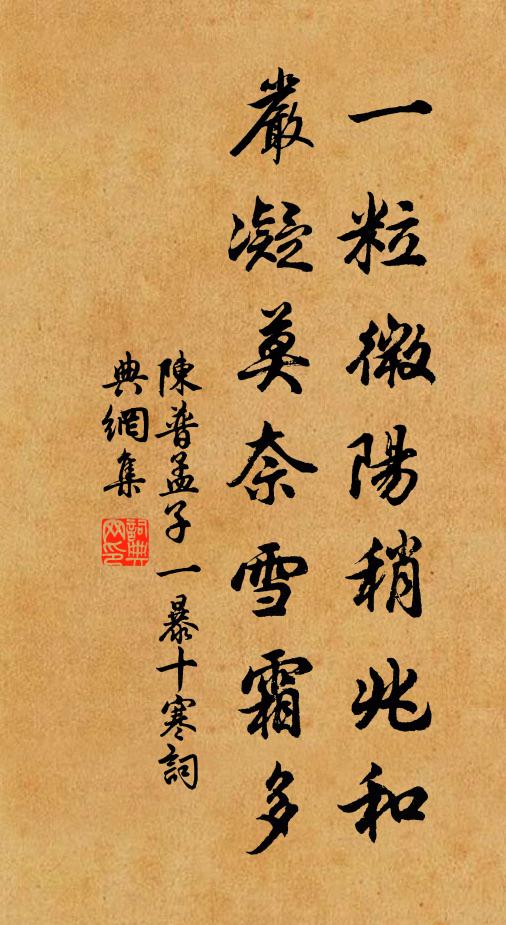 一粒微陽稍兆和
嚴凝莫奈雪霜多
陳普孟子一暴十寒詞
典網集
詞典網印